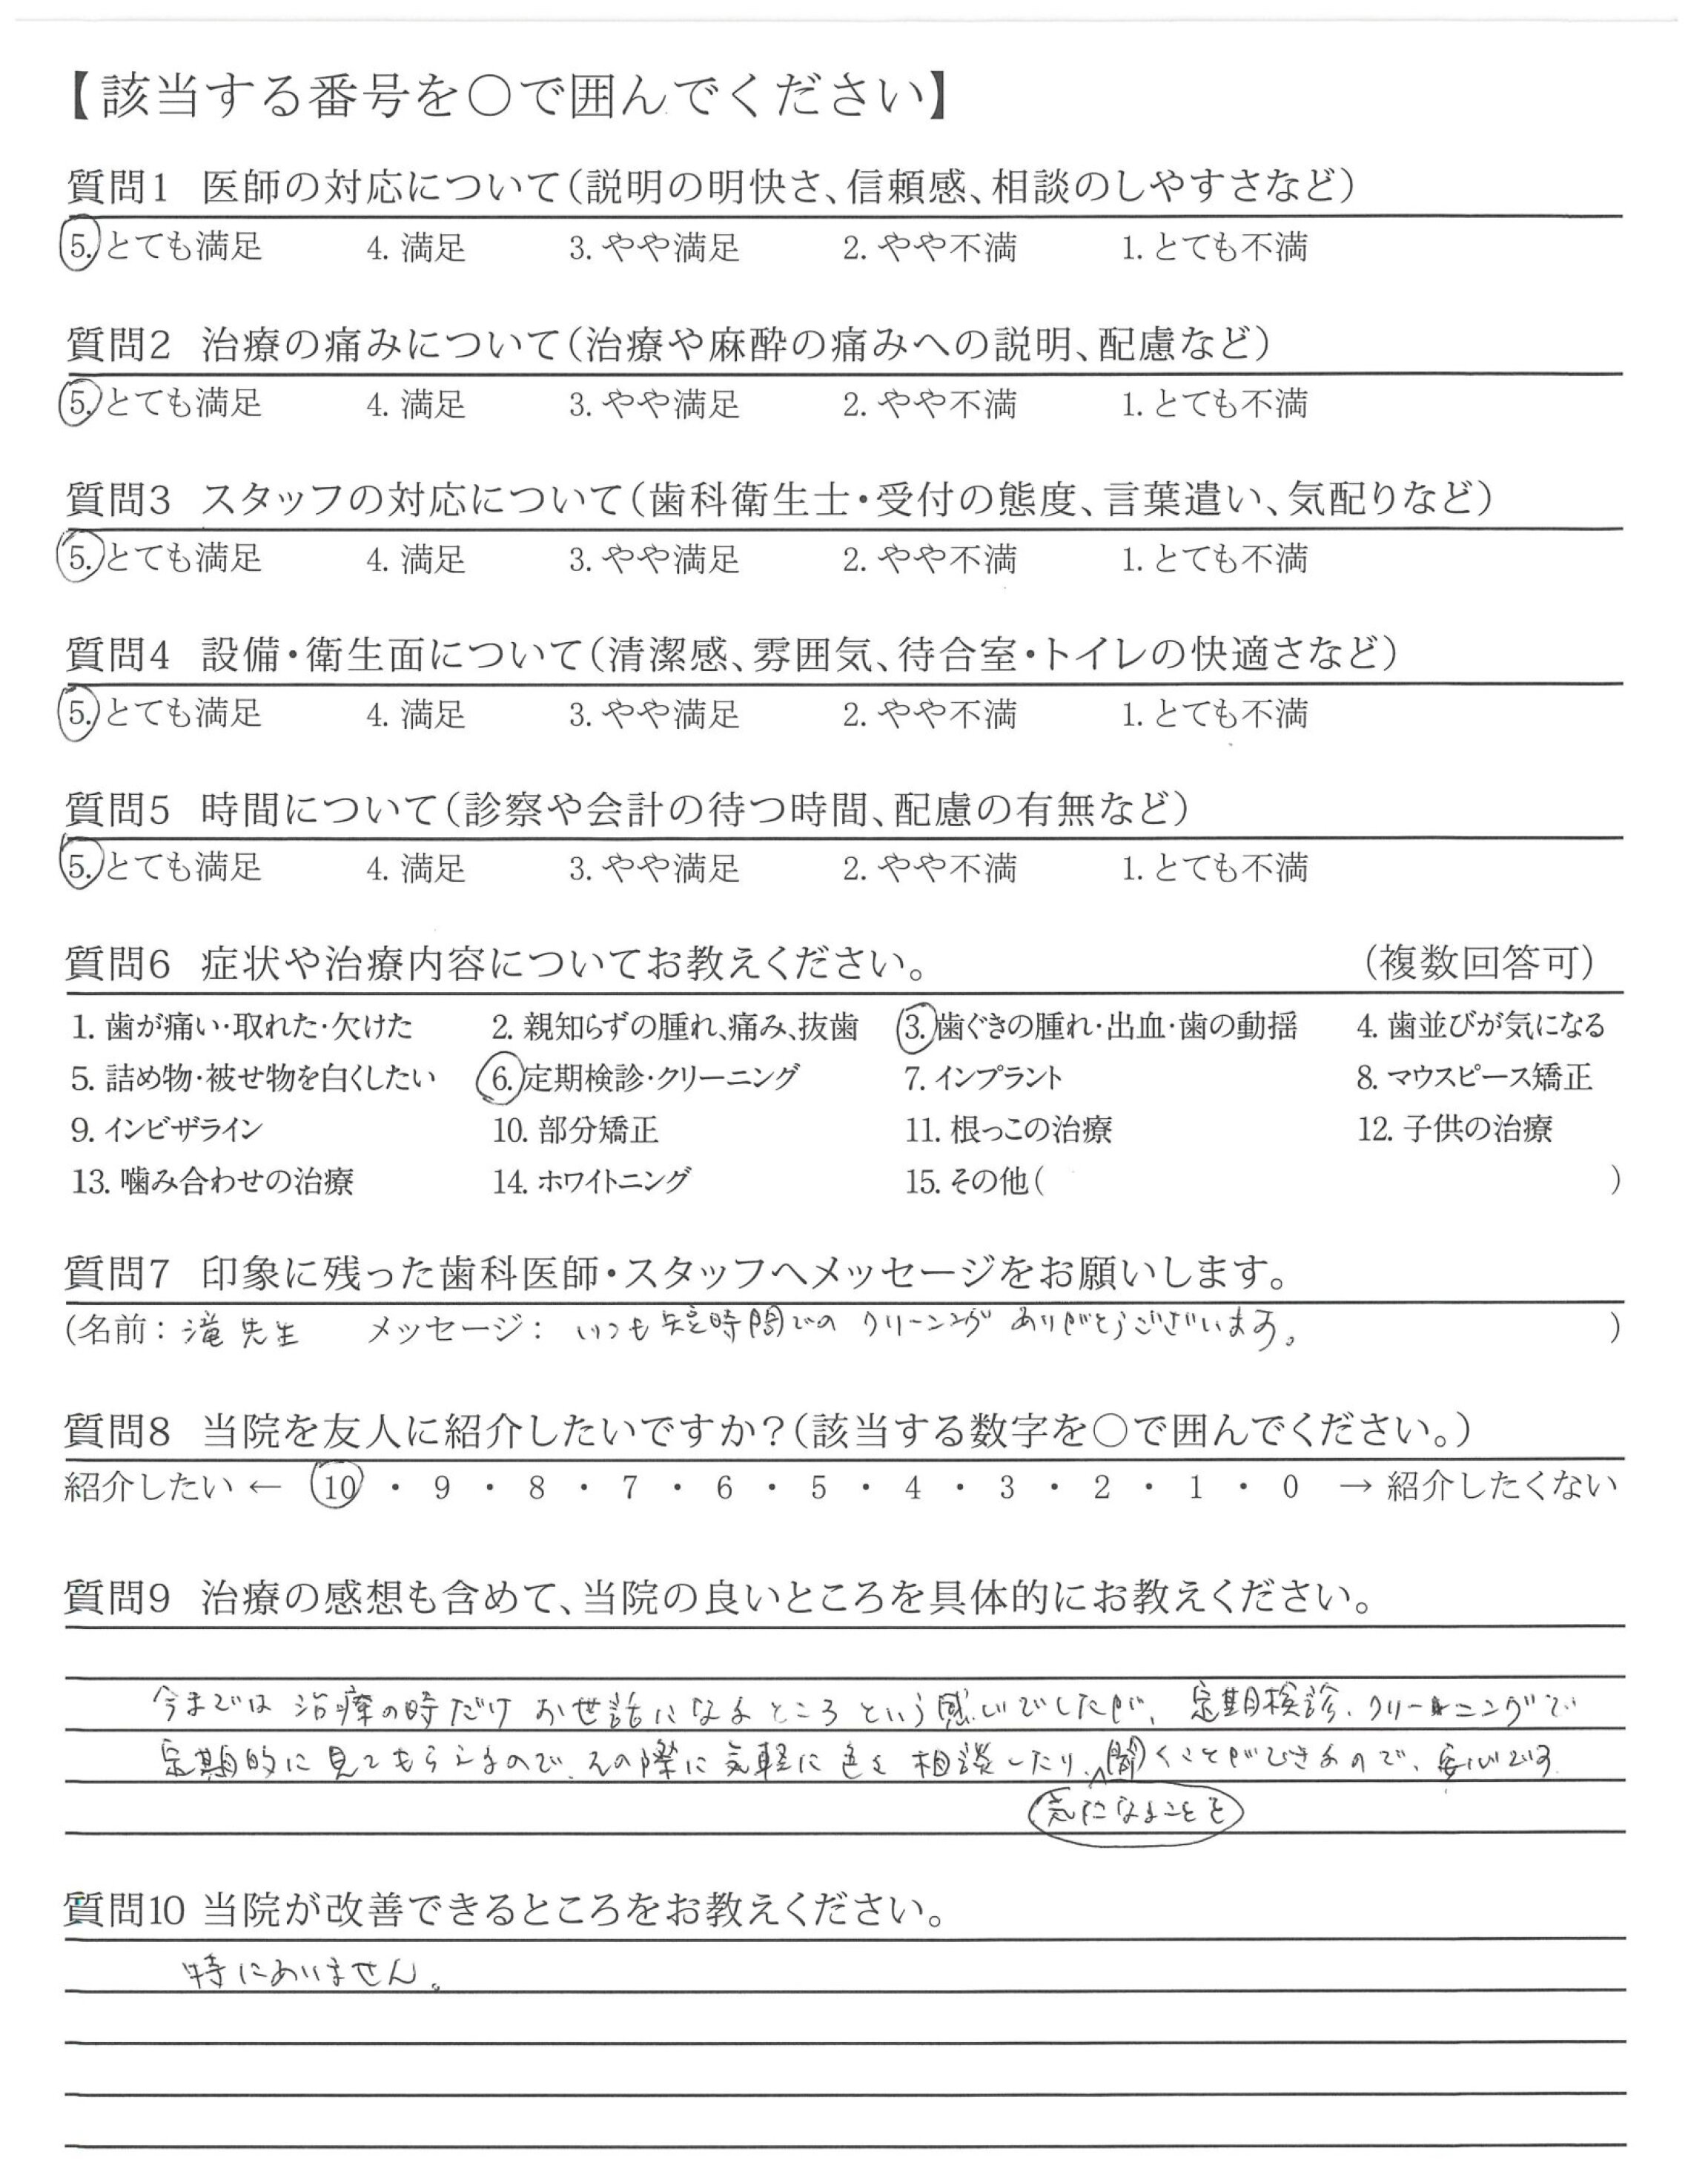 【該当する番号を○で囲んでください】
質問1 医師の対応について(説明の明快さ、信頼感、相談のしやすさなど)
5. とても満足 4. 満足 3. やや満足 2. やや不満 1. とても不満
質問2 治療の痛みについて(治療や麻酔の痛みへの説明、配慮など)
5. とても満足 4. 満足 3. やや満足 2. やや不満 1. とても不満
質問3 スタッフの対応について(歯科衛生士・受付の態度、言葉遣い、気配りなど)
5. とても満足 4. 満足 3. やや満足 2. やや不満 1. とても不満
質問4 設備・衛生面について(清潔感、雰囲気、待合室・トイレの快適さなど)
5. とても満足 4. 満足 3. やや満足 2. やや不満 1. とても不満
質問5 時間について(診察や会計の待つ時間、配慮の有無など)
5. とても満足 4. 満足 3. やや満足 2. やや不満 1. とても不満
質問6 症状や治療内容についてお教えください。 (複数回答可)
1. 歯が痛い・取れた・欠けた 2. 親知らずの腫れ、痛み、抜歯 3. 歯ぐきの腫れ・出血・歯の動揺 4. 歯並びが気になる
5. 詰め物・被せ物を白くしたい 6. 定期検診・クリーニング 7. インプラント 8. マウスピース矯正
9. インビザライン 10. 部分矯正 11. 根っこの治療 12. 子供の治療
13. 噛み合わせの治療 14. ホワイトニング 15. その他( )
質問7 印象に残った歯科医師・スタッフへメッセージをお願いします。
(名前: 滝先生 メッセージ: いつも短時間でのクリーニングありがとうございます。 )
質問8 当院を友人に紹介したいですか?(該当する数字を○で囲んでください。)
紹介したい ← 10 ・ 9 ・ 8 ・ 7 ・ 6 ・ 5 ・ 4 ・ 3 ・ 2 ・ 1 ・ 0 → 紹介したくない
質問9 治療の感想も含めて、当院の良いところを具体的にお教えください。
今までは治療の時だけお世話になるところという感じでしたが、定期検診、クリーニングで
定期的に見てもらえるので、その際に気軽に色々相談したり、聞くことができるので、安心です
気になることを
質問10 当院が改善できるところをお教えください。
特にありません。